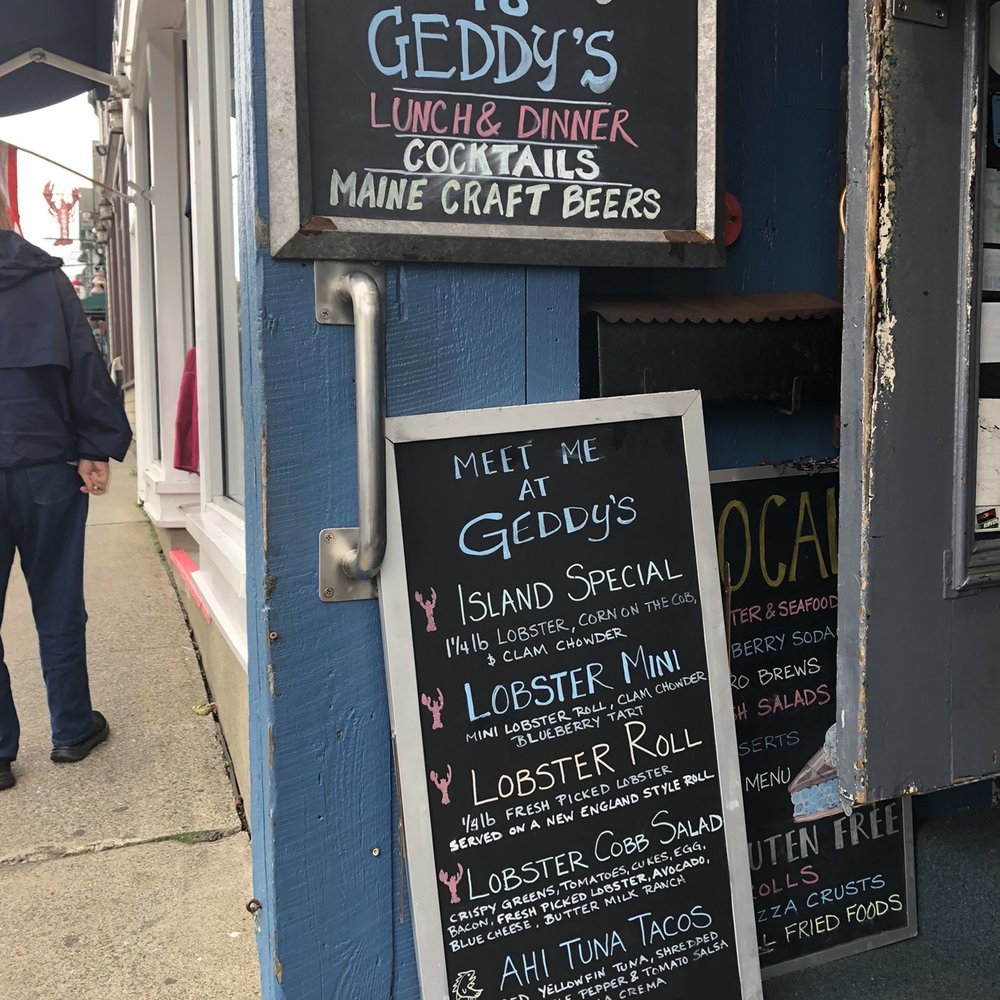 GEDDY'S
LUNCH & DINNER
COCKTAILS
MAINE CRAFT BEERS
MEET ME
AT
GEDDY'S
ISLAND SPECIAL
1 1/4 lb LOBSTER, CORN ON THE COB,
& CLAM CHOWDER
LOBSTER MINI
MINI LOBSTER ROLL, CLAM CHOWDER
BLUEBERRY TART
LOBSTER ROLL
1/4 lb FRESH PICKED LOBSTER
SERVED ON A NEW ENGLAND STYLE ROLL
LOBSTER COBB SALAD
CRISPY GREENS, TOMATOES, CUKES, EGG,
BACON, FRESH PICKED LOBSTER, AVOCADO,
BLUE CHEESE, BUTTER MILK RANCH
AHI TUNA TACOS
YELLOWFIN TUNA, SHREDDED
PEPPER & TOMATO SALSA
CREMA
OCAL
TER & SEAFOOD
BERRY SODA
RO BREWS
SH SALADS
SSERTS
MENU
UTEN FREE
OLLS
ZZA CRUSTS
LL FRIED FOODS